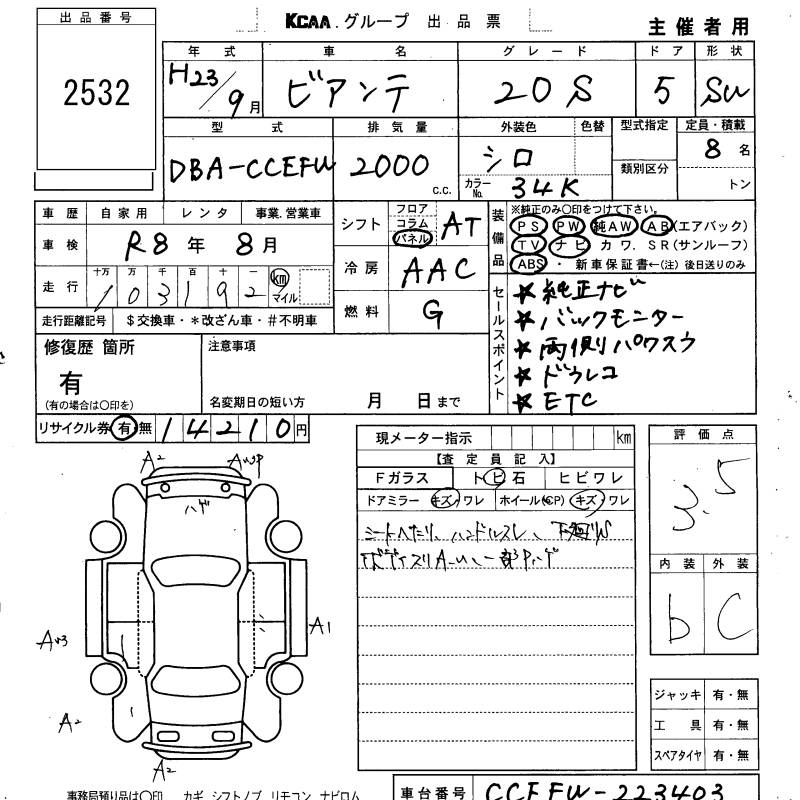 出品番号
2532
KCAA.グループ 出品票
主催者用
年式 車名 グレード ドア 形状
H23/9月 ビアンテ 20S 5 SW
型式 排気量 外装色 色替 型式指定 定員・積載
DBA-CCEFW 2000 c.c. シロ 類別区分 8名
カラーNo. 34K トン
車歴 自家用 レンタ 事業.営業車
車検 R8年 8月
走行 十万 万 千 百 十 一
103192 km マイル
走行距離記号 $交換車・*改ざん車・#不明車
シフト フロア コラム パネル AT
冷房 AAC
燃料 G
装備品 ※純正のみ〇印をつけて下さい。
PS PW 純AW AB(エアバック)
TV ナビ カワ.SR(サンルーフ)
ABS・新車保証書←(注)後日送りのみ
セールスポイント
★純正ナビ
★バックモニター
★両側パワスラ
★ドラレコ
★ETC
修復歴 箇所
有
(有の場合は〇印を)
注意事項
名変期日の短い方 月 日まで
リサイクル券 有・無 14210円
現メーター指示 km
【査定員記入】
Fガラス トビ石 ヒビワレ
ドアミラー キズ,ワレ ホイール(CP) キズ,ワレ
シートヘタリ、ハンドルスレ、下廻りW
評価点
3.5
内装 外装
b C
A2
ハゲ
A1
A2
A2
ジャッキ 有・無
工具 有・無
スペアタイヤ 有・無
事務局預り品は〇印、カギ シフトノブ リモコン ナビロム
車台番号 CCEFW-223403